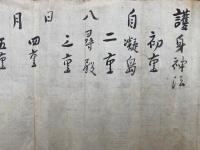 護身神法
初重
自凝島
二重
八尋殿
三重
日
四重
月
五重